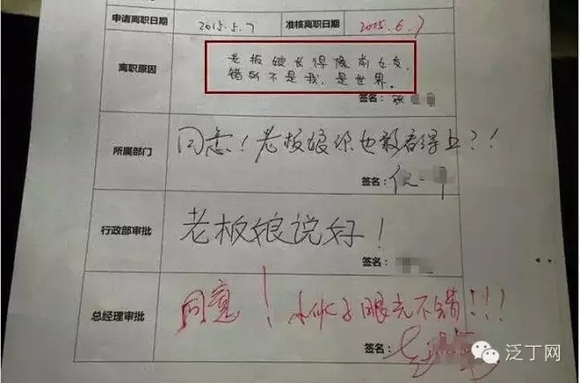 申请离职日期 2015.5.7 准核离职日期 2015.6.7
离职原因
老板娘长得像前女友,
错的不是我,是世界。
签名:
所属部门
同意!老板娘你也敢看得上?!
签名:
行政部审批
老板娘说好!
签名:
总经理审批
同意! 小伙子眼光不错!!!
签名:
泛丁网